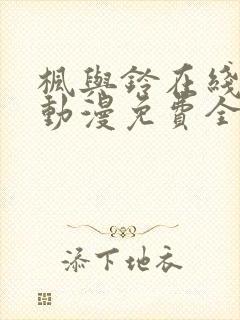 楓與鈴在綫
動漫免費全
添下地衣